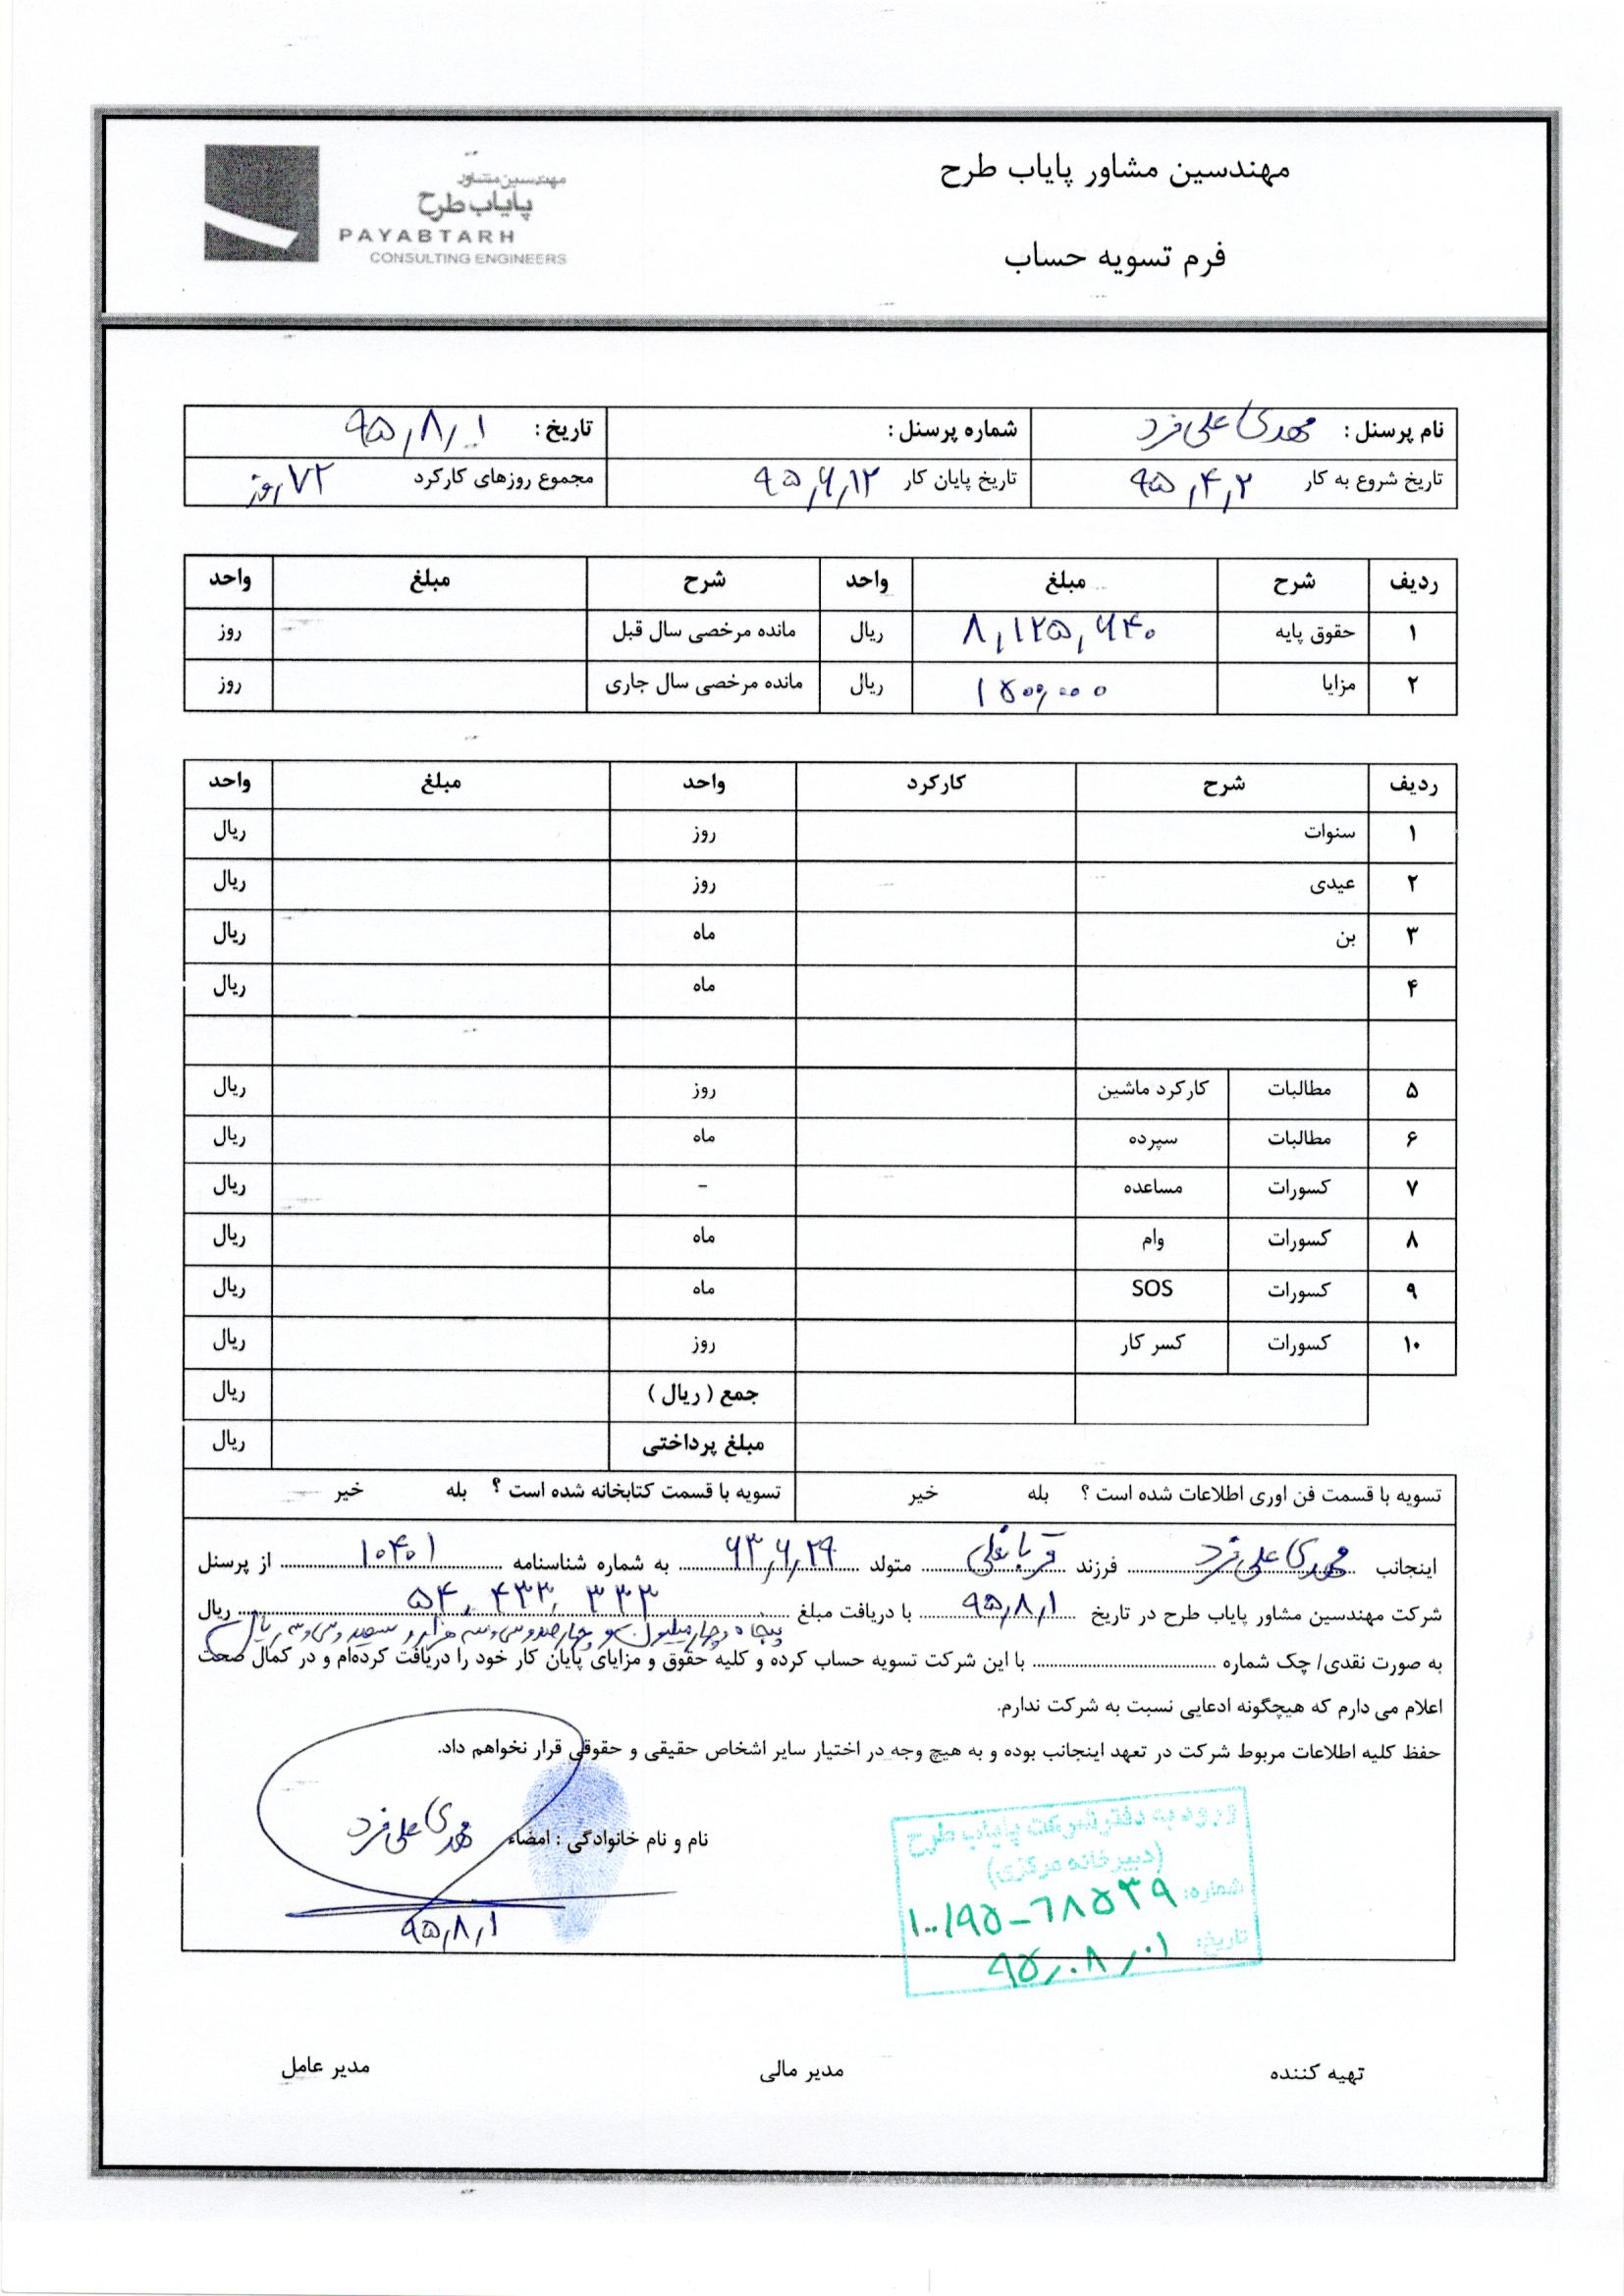 مهندسین مشاور پایاب طرح
فرم تسویه حساب
مهندسین مشاور
پایاب طرح
PAYABTARH
CONSULTING ENGINEERS
نام پرسنل : مهدی علی فرد شماره پرسنل : تاریخ : ۹۵,۸,۱
تاریخ شروع به کار ۹۵,۴,۲ تاریخ پایان کار ۹۵,۶,۱۲ مجموع روزهای کارکرد ۷۲ روز
ردیف شرح مبلغ واحد شرح مبلغ واحد
۱ حقوق پایه ۸,۱۲۵,۶۴۰ ریال مانده مرخصی سال قبل روز
۲ مزایا ۱۵۰۰,۰۰۰ ریال مانده مرخصی سال جاری روز
ردیف شرح کارکرد واحد مبلغ واحد
۱ سنوات روز ریال
۲ عیدی روز ریال
۳ بن ماه ریال
۴ ماه ریال
۵ مطالبات کارکرد ماشین روز ریال
۶ مطالبات سپرده ماه ریال
۷ کسورات مساعده - ریال
۸ کسورات وام ماه ریال
۹ کسورات SOS ماه ریال
۱۰ کسورات کسر کار روز ریال
جمع ( ریال ) ریال
مبلغ پرداختی ریال
تسویه با قسمت فن اوری اطلاعات شده است ؟ بله خیر تسویه با قسمت کتابخانه شده است ؟ بله خیر
اینجانب مهدی علی فرد فرزند قربانعلی متولد ۶۳,۶,۲۹ به شماره شناسنامه ۱۰۴۰۱ از پرسنل
شرکت مهندسین مشاور پایاب طرح در تاریخ ۹۵,۸,۱ با دریافت مبلغ ۵۴,۴۳۳,۳۳۳ ریال
پنجاه و چهار میلیون و چهارصد و سی و سه هزار و سیصد و سی و سه ریال
به صورت نقدی/ چک شماره با این شرکت تسویه حساب کرده و کلیه حقوق و مزایای پایان کار خود را دریافت کرده‌ام و در کمال صحت
اعلام می دارم که هیچگونه ادعایی نسبت به شرکت ندارم.
حفظ کلیه اطلاعات مربوط شرکت در تعهد اینجانب بوده و به هیچ وجه در اختیار سایر اشخاص حقیقی و حقوقی قرار نخواهم داد.
نام و نام خانوادگی : امضاء مهدی علی فرد
۹۵,۸,۱
ورود به دفتر شرکت پایاب طرح
(دبیرخانه مرکزی)
شماره: ۱۰۰/۹۵-۶۸۵۳۹
تاریخ: ۹۵,۰۸,۰۱
تهیه کننده مدیر مالی مدیر عامل